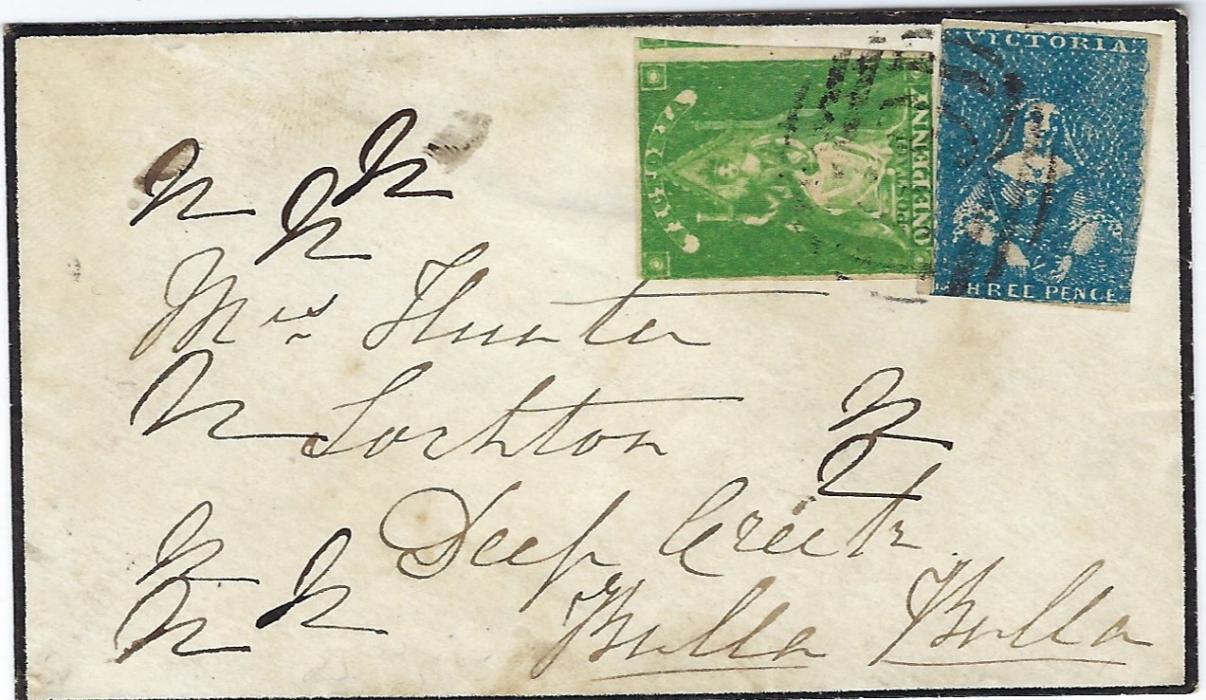 VICTORIA
VICTORIA
POSTAGE
ONE PENNY
THREE PENCE
Mrs Hunter
Lochton
Deep Creek
Bulla Bulla